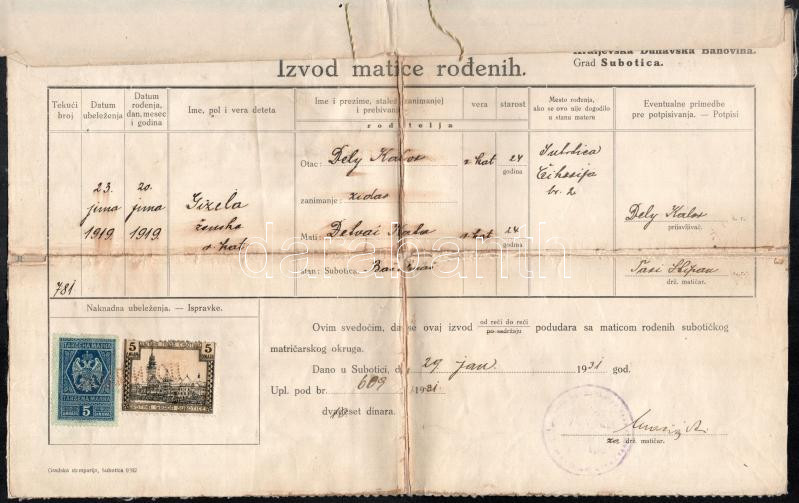 Kraljevska Dunavska Banovina.
Grad Subotica.
Izvod matice rođenih.
Tekući broj
Datum ubeleženja
Datum rođenja, dan, mesec i godina
Ime, pol i vera deteta
Ime i prezime, stalež (zanimanje) i prebivanje
roditelja
vera
starost
Mesto rođenja, ako se ovo nije dogodilo u stanu matere
Eventualne primedbe pre potpisivanja. — Potpisi
781
23. juna 1919
20. juna 1919.
Gizela
ženska
r. kat.
Otac: Dely Kalos
r kat
24
godina
zanimanje: zidar
Mati:
r kat
24
godina
stan: Subotica,
Subotica
br. 2
Dely Kalos
prijavljivač.
Stipan
drž. matičar.
Naknadna ubeleženja. — Ispravke.
TAKSENA MARKA
ТАКСЕНА МАРКА
5
5 DINARA 5
GRADA SUBOTICE
Ovim svedočim, da se ovaj izvod od reči do reči po sadržaju podudara sa maticom rođenih subotičkog
matričarskog okruga.
Dano u Subotici, dne 29 jan. 1931 god.
Upl. pod br. 609 /1931.
dvadeset dinara.
za drž. matičar.
Gradska štamparija, Subotica
darabanth